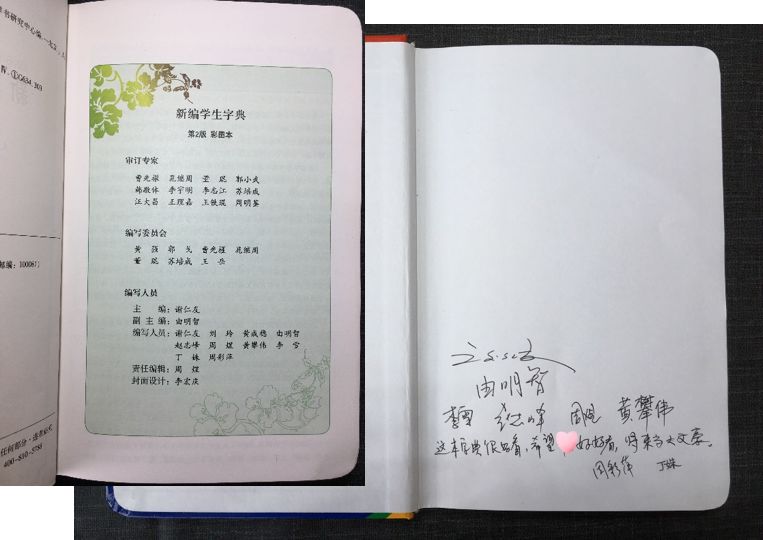 书研究中心编.一北京
①G634.303
邮编：100081）
任何部分·违者必究
400-810-5788
新编学生字典
第2版 彩图本
审订专家
曹先擢 晁继周 董琨 郭小武
韩敬体 李宇明 李志江 苏培成
汪大昌 王理嘉 王铁琨 周明鉴
编写委员会
黄强 郭戈 曹先擢 晁继周
董琨 苏培成 王岳
编写人员
主编：谢仁友
副主编：由明智
编写人员：谢仁友 刘玲 黄成稳 由明智
赵志峰 周煜 黄攀伟 李雪
丁姝 周彩萍
责任编辑：周煜
封面设计：李宏庆
由明智
李雪 赵志峰 周煜 黄攀伟
这本字典很好看，希望 好好看，将来当大文豪。
周彩萍 丁姝